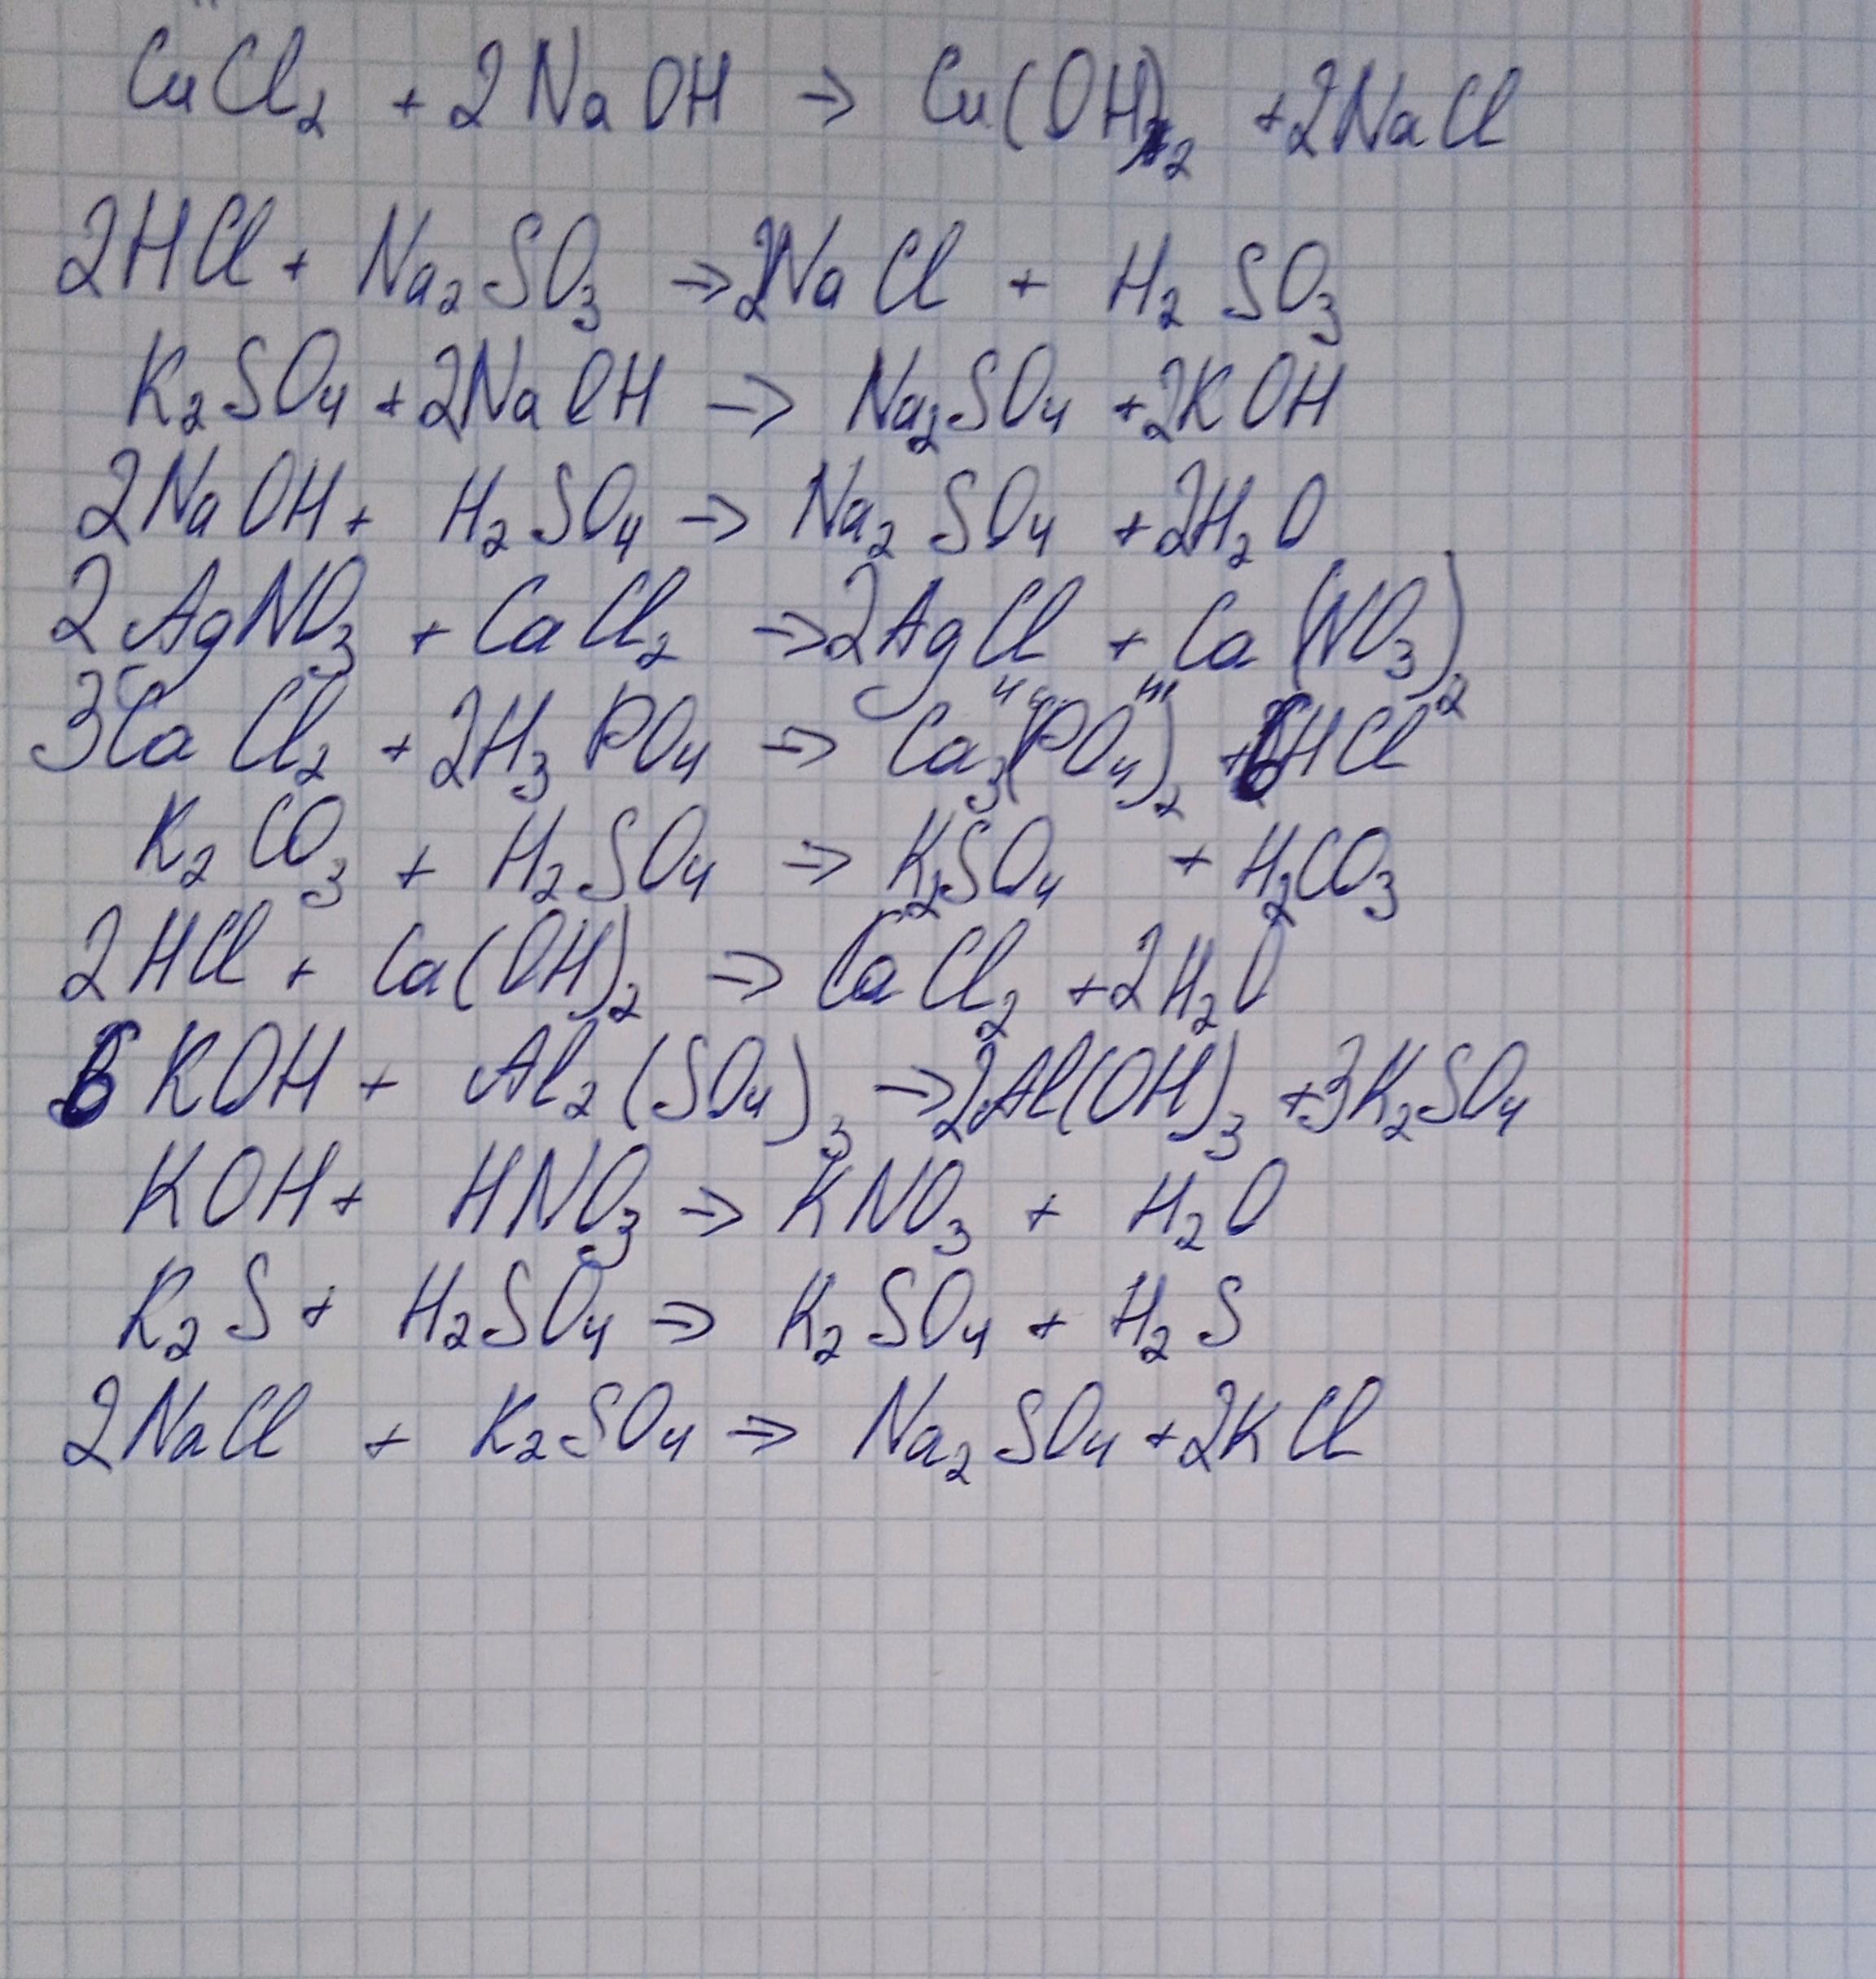 CuCl₂ + 2NaOH → Cu(OH)₂ + 2NaCl
2HCl + Na₂SO₃ → 2NaCl + H₂SO₃
K₂SO₄ + 2NaOH → Na₂SO₄ + 2KOH
2NaOH + H₂SO₄ → Na₂SO₄ + 2H₂O
2AgNO₃ + CaCl₂ → 2AgCl + Ca(NO₃)₂
3CaCl₂ + 2H₃PO₄ → Ca₃(PO₄)₂ + 6HCl
K₂CO₃ + H₂SO₄ → K₂SO₄ + H₂CO₃
2HCl + Ca(OH)₂ → CaCl₂ + 2H₂O
6KOH + Al₂(SO₄)₃ → 2Al(OH)₃ + 3K₂SO₄
KOH + HNO₃ → KNO₃ + H₂O
K₂S + H₂SO₄ → K₂SO₄ + H₂S
2NaCl + K₂SO₄ → Na₂SO₄ + 2KCl